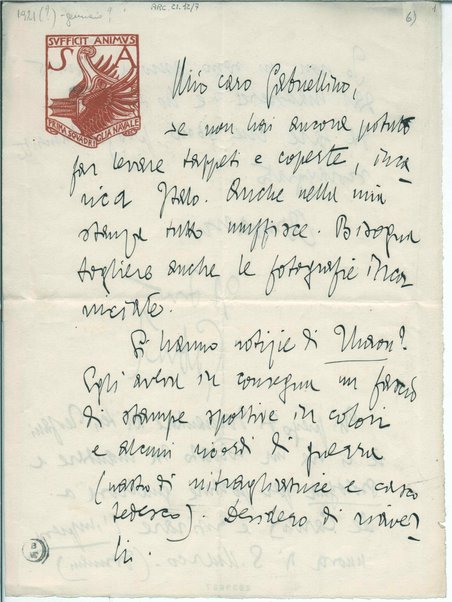 1921(?) - gennaio?
ARC. 21. 12/7
6)
SVFFICIT ANIMVS
S A
PRIMA SQVADRIGLIA NAVALE
Mio caro Gabriellino,
se non hai ancora potuto
far levare tappeti e coperte, inca-
rica Italo. Anche nella mia
stanza tutto muffisce. Bisogna
togliere anche le fotografie inca
niciate.
Si hanno notizie di
Egli aveva in consegna un fascio
di stampe sportive in colori
e alcuni ricordi di guerra
(nastro di mitragliatrice e casco
tedesco). Desidero di riaver
li.